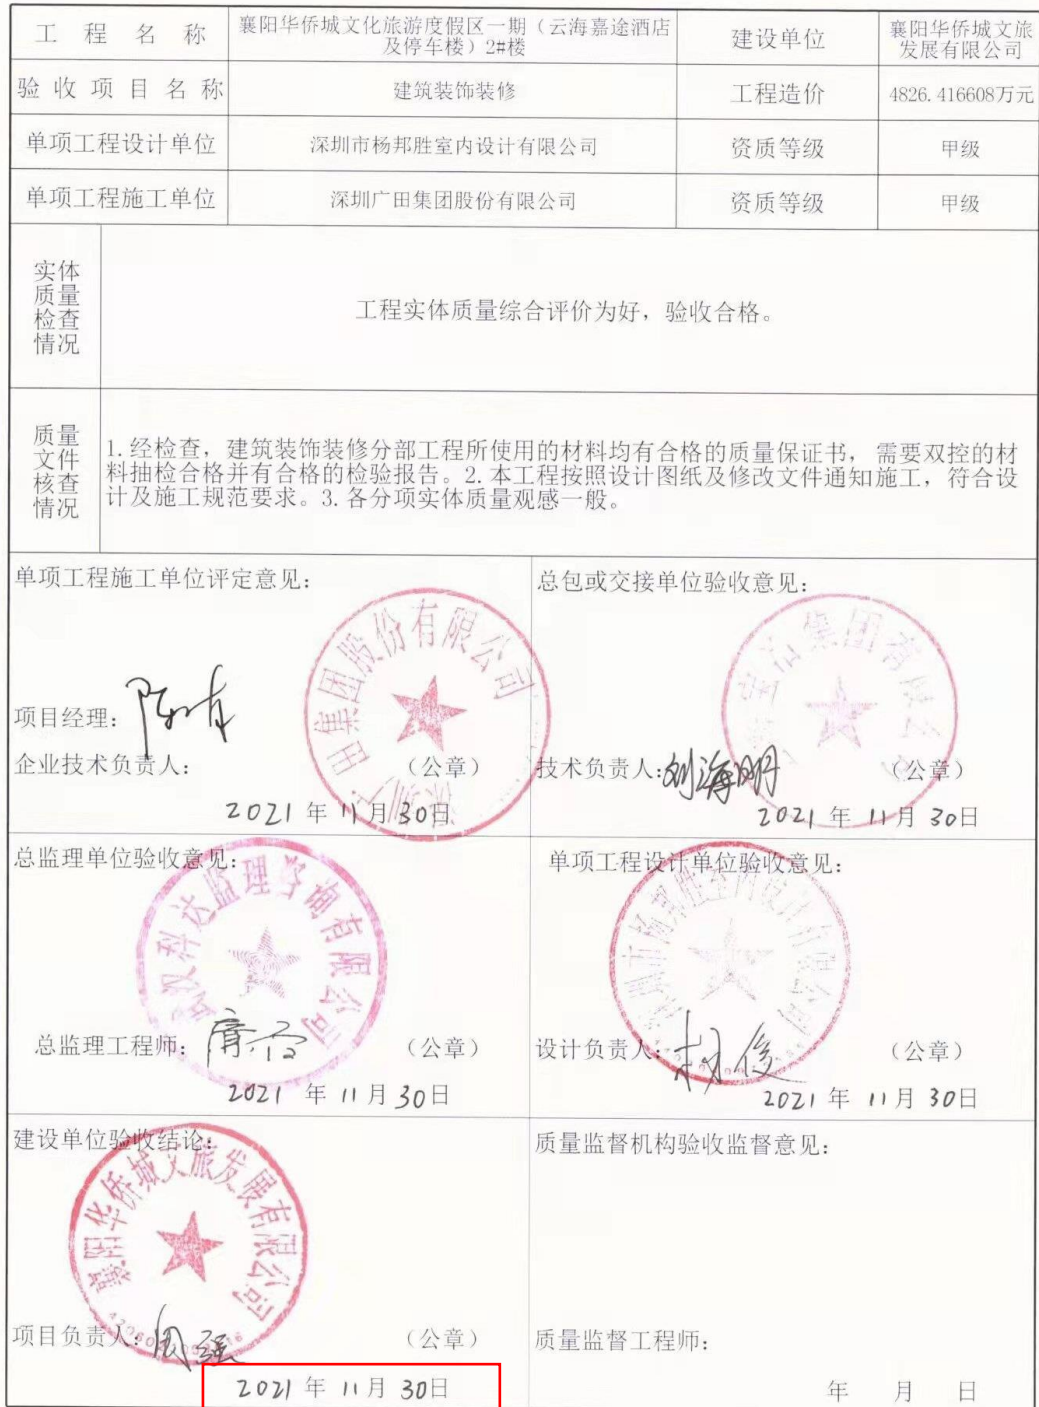 工程名称
襄阳华侨城文化旅游度假区一期（云海嘉途酒店
及停车楼）2#楼
建设单位
襄阳华侨城文旅
发展有限公司
验收项目名称
建筑装饰装修
工程造价
4826.416608万元
单项工程设计单位
深圳市杨邦胜室内设计有限公司
资质等级
甲级
单项工程施工单位
深圳广田集团股份有限公司
资质等级
甲级
实体
质量
检查
情况
工程实体质量综合评价为好，验收合格。
质量
文件
核查
情况
1.经检查，建筑装饰装修分部工程所使用的材料均有合格的质量保证书，需要双控的材
料抽检合格并有合格的检验报告。2.本工程按照设计图纸及修改文件通知施工，符合设
计及施工规范要求。3.各分项实体质量观感一般。
单项工程施工单位评定意见：
深圳广田集团股份有限公司
项目经理：
企业技术负责人：
（公章）
2021年11月30日
总包或交接单位验收意见：
集团有限公司
技术负责人：刘海明
（公章）
2021年11月30日
总监理单位验收意见：
科达监理咨询有限公司
总监理工程师：
（公章）
2021年11月30日
单项工程设计单位验收意见：
深圳市杨邦胜室内设计有限公司
设计负责人：胡俊
（公章）
2021年11月30日
建设单位验收结论：
襄阳华侨城文旅发展有限公司
项目负责人：周强
（公章）
2021年11月30日
质量监督机构验收监督意见：
质量监督工程师：
年月日